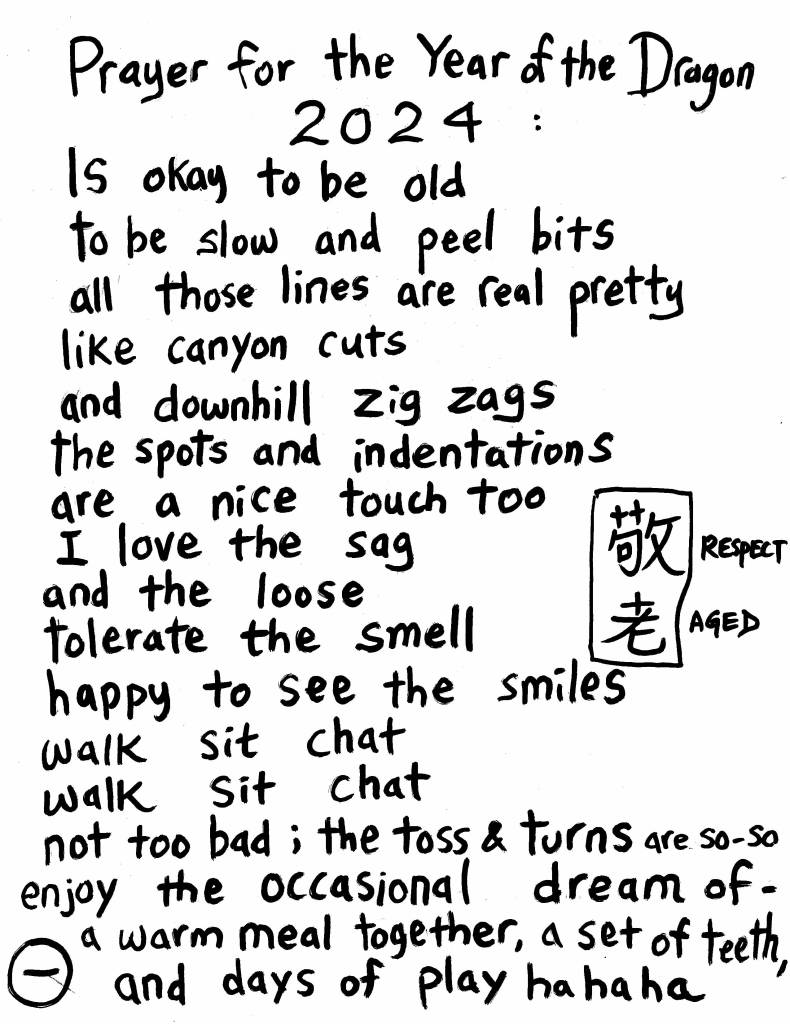 Prayer for the Year of the Dragon
2024 :
Is okay to be old
to be slow and peel bits
all those lines are real pretty
like canyon cuts
and downhill zig zags
the spots and indentations
are a nice touch too
I love the sag
and the loose
tolerate the smell
happy to see the smiles
walk sit chat
walk sit chat
not too bad ; the toss & turns are so-so
enjoy the occasional dream of-
a warm meal together, a set of teeth,
and days of play ha ha ha
敬 RESPECT
老 AGED
一